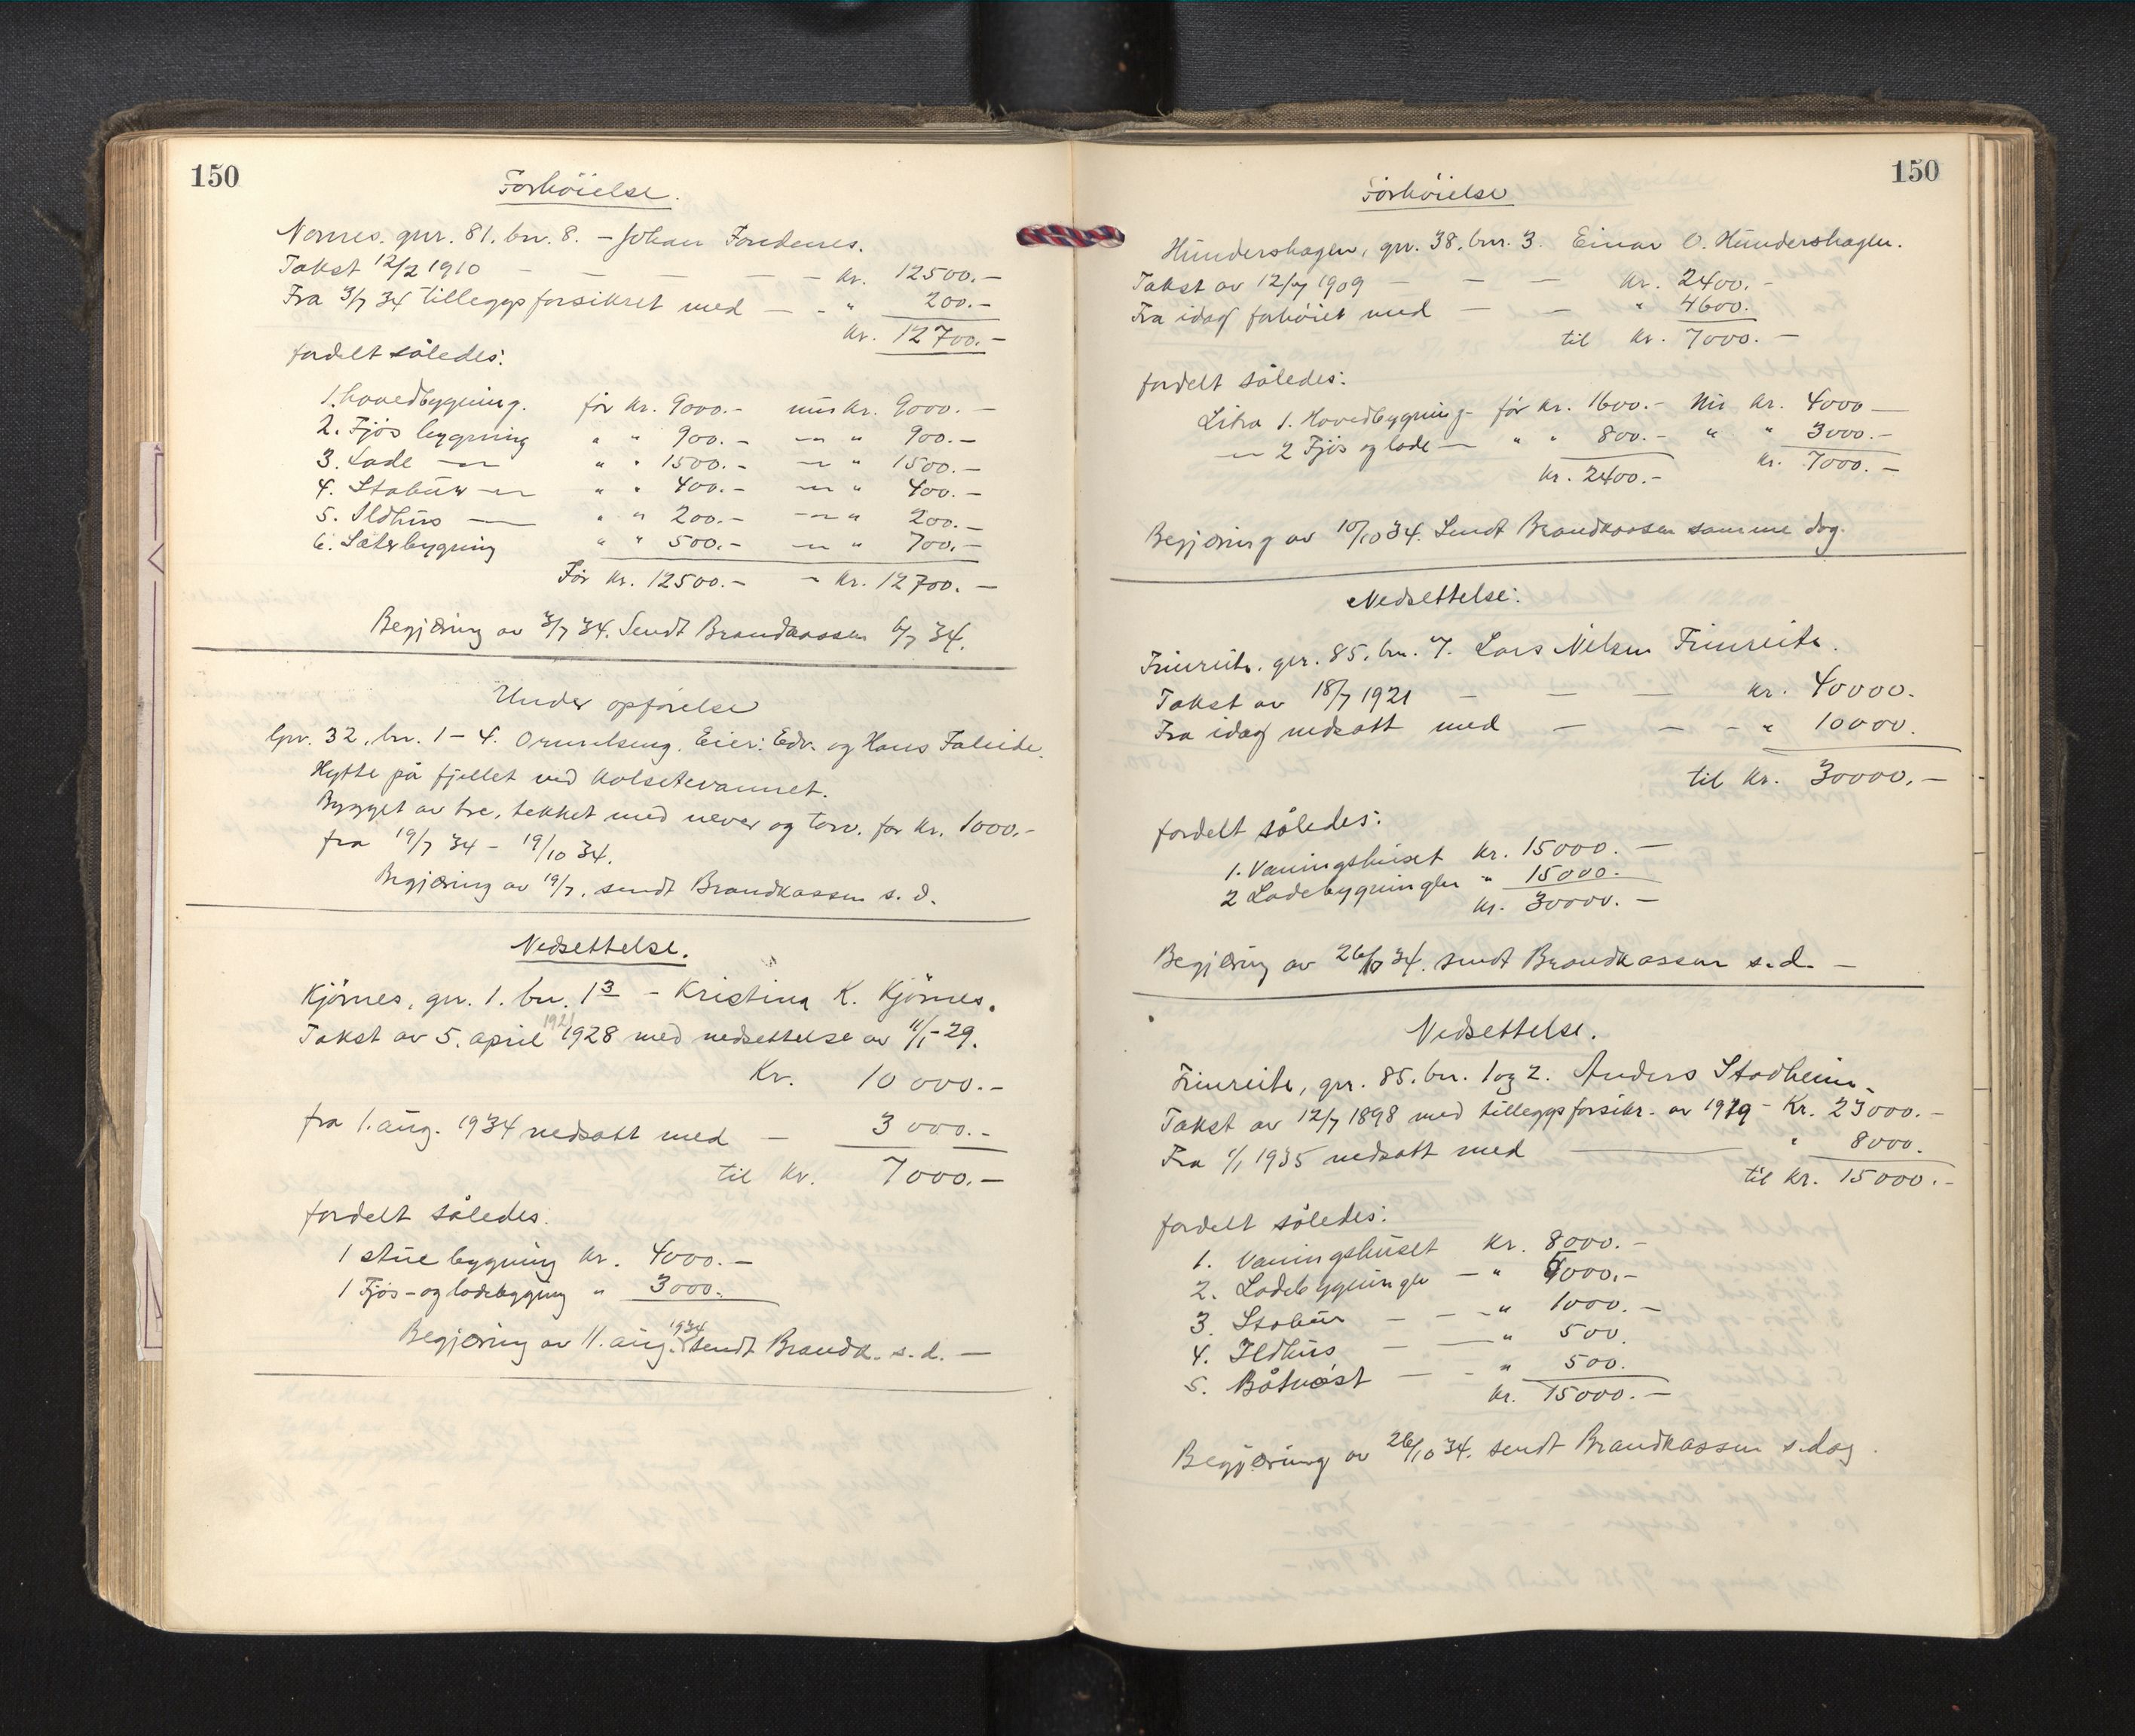 150
Forhöielse.
Nornes. gnr. 81. bn. 8. – Johan Fondenes.
Takst 12/2 1910 – – – – – kr. 12500.–
Fra 3/7 34 tilleggsforsikret med – - " 200.–
kr. 12700.–
fordelt således:
1. hovedbygning. før kr. 9000.– nu kr. 9000.–
2. Fjös bygning " " 900.– –"– " 900.–
3. Lade –"– " " 1500.– –"– " 1500.–
4. Stabur –"– " " 400.– –"– " 400.–
5. Ildhus – " " 200.– –"– " 200.–
6. Seterbygning " " 500.– –"– " 700.–
Før kr. 12500.– – kr. 12700.–
Begjæring av 3/7 34. Sendt Brandkassen 6/7 34.
Under opførelse
Gnr. 32, bn. 1–4. Eier: Edv. og Hans Faleide.
Hytte på fjellet ved Kolsetevannet.
Bygget av tre, tekket med never og torv. for kr. 1000.–
fra 19/7 34 – 19/10 34.
Begjæring av 19/7. sendt Brandkassen s. d.
Nedsettelse.
Kjörnes, gn. 1. bn. 13 – Kristina K. Kjörnes.
Takst av 5. april 1921 1928 med nedsettelse av 11/1–29.
Kr. 10 000.–
fra 1. aug. 1934 nedsatt med – 3 000.–
til kr. 7000.–
fordelt således.
1 stuebygning kr. 4000.–
1 Fjös- og ladebygning " 3000.
Begjæring av 11. aug. 1934 sendt Brandk. s. d. –
150
Forhöielse
Hundershagen, gnr. 38, bnr. 3. Einar O. Hundershagen.
Takst av 12/7 1909 – – – kr. 2400.–
Fra idag forhöiet med – – " 4600.
til kr. 7000.–
fordelt således:
Litra 1. Hovedbygning – før kr. 1600.– Nu kr. 4000–
–"– 2 Fjös og lade – " " 800.– " " 3000.–
kr. 2400.– kr. 7000.–
Begjæring av 10/10 34. Sendt Brandkassen samme dag.
Nedsettelse:
Fimreite. gnr. 85. bn. 7. Lars Nilsen Fimreite.
Takst av 18/7 1921 – – – kr. 40000.
Fra idag nedsatt med – – – " 10000.
til kr. 30000.–
fordelt således:
1. Vaningshuset kr. 15000.–
2 Ladebygningen " 15000.
kr. 30000.–
Begjæring av 26/10 34. sendt Brandkassen s. d. –
Nedsettelse.
Fimreite, gnr. 85. bn. 1 og 2. Anders Stadheim.
Takst av 12/7 1898 med tilleggsforsikr. av 1919 – Kr. 23000.–
Fra 1/1 1935 nedsatt med – " 8000.
til kr. 15000.–
fordelt således:
1. Vaningshuset kr. 8000.–
2. Ladebygningen – " 5000.–
3. Stabur – – " 1000.–
4. Ildhus – – " 500.
5. Båtnøst – - " 500.
kr. 15000.–
Begjæring av 26/10 34. sendt Brandkassen s. dag.